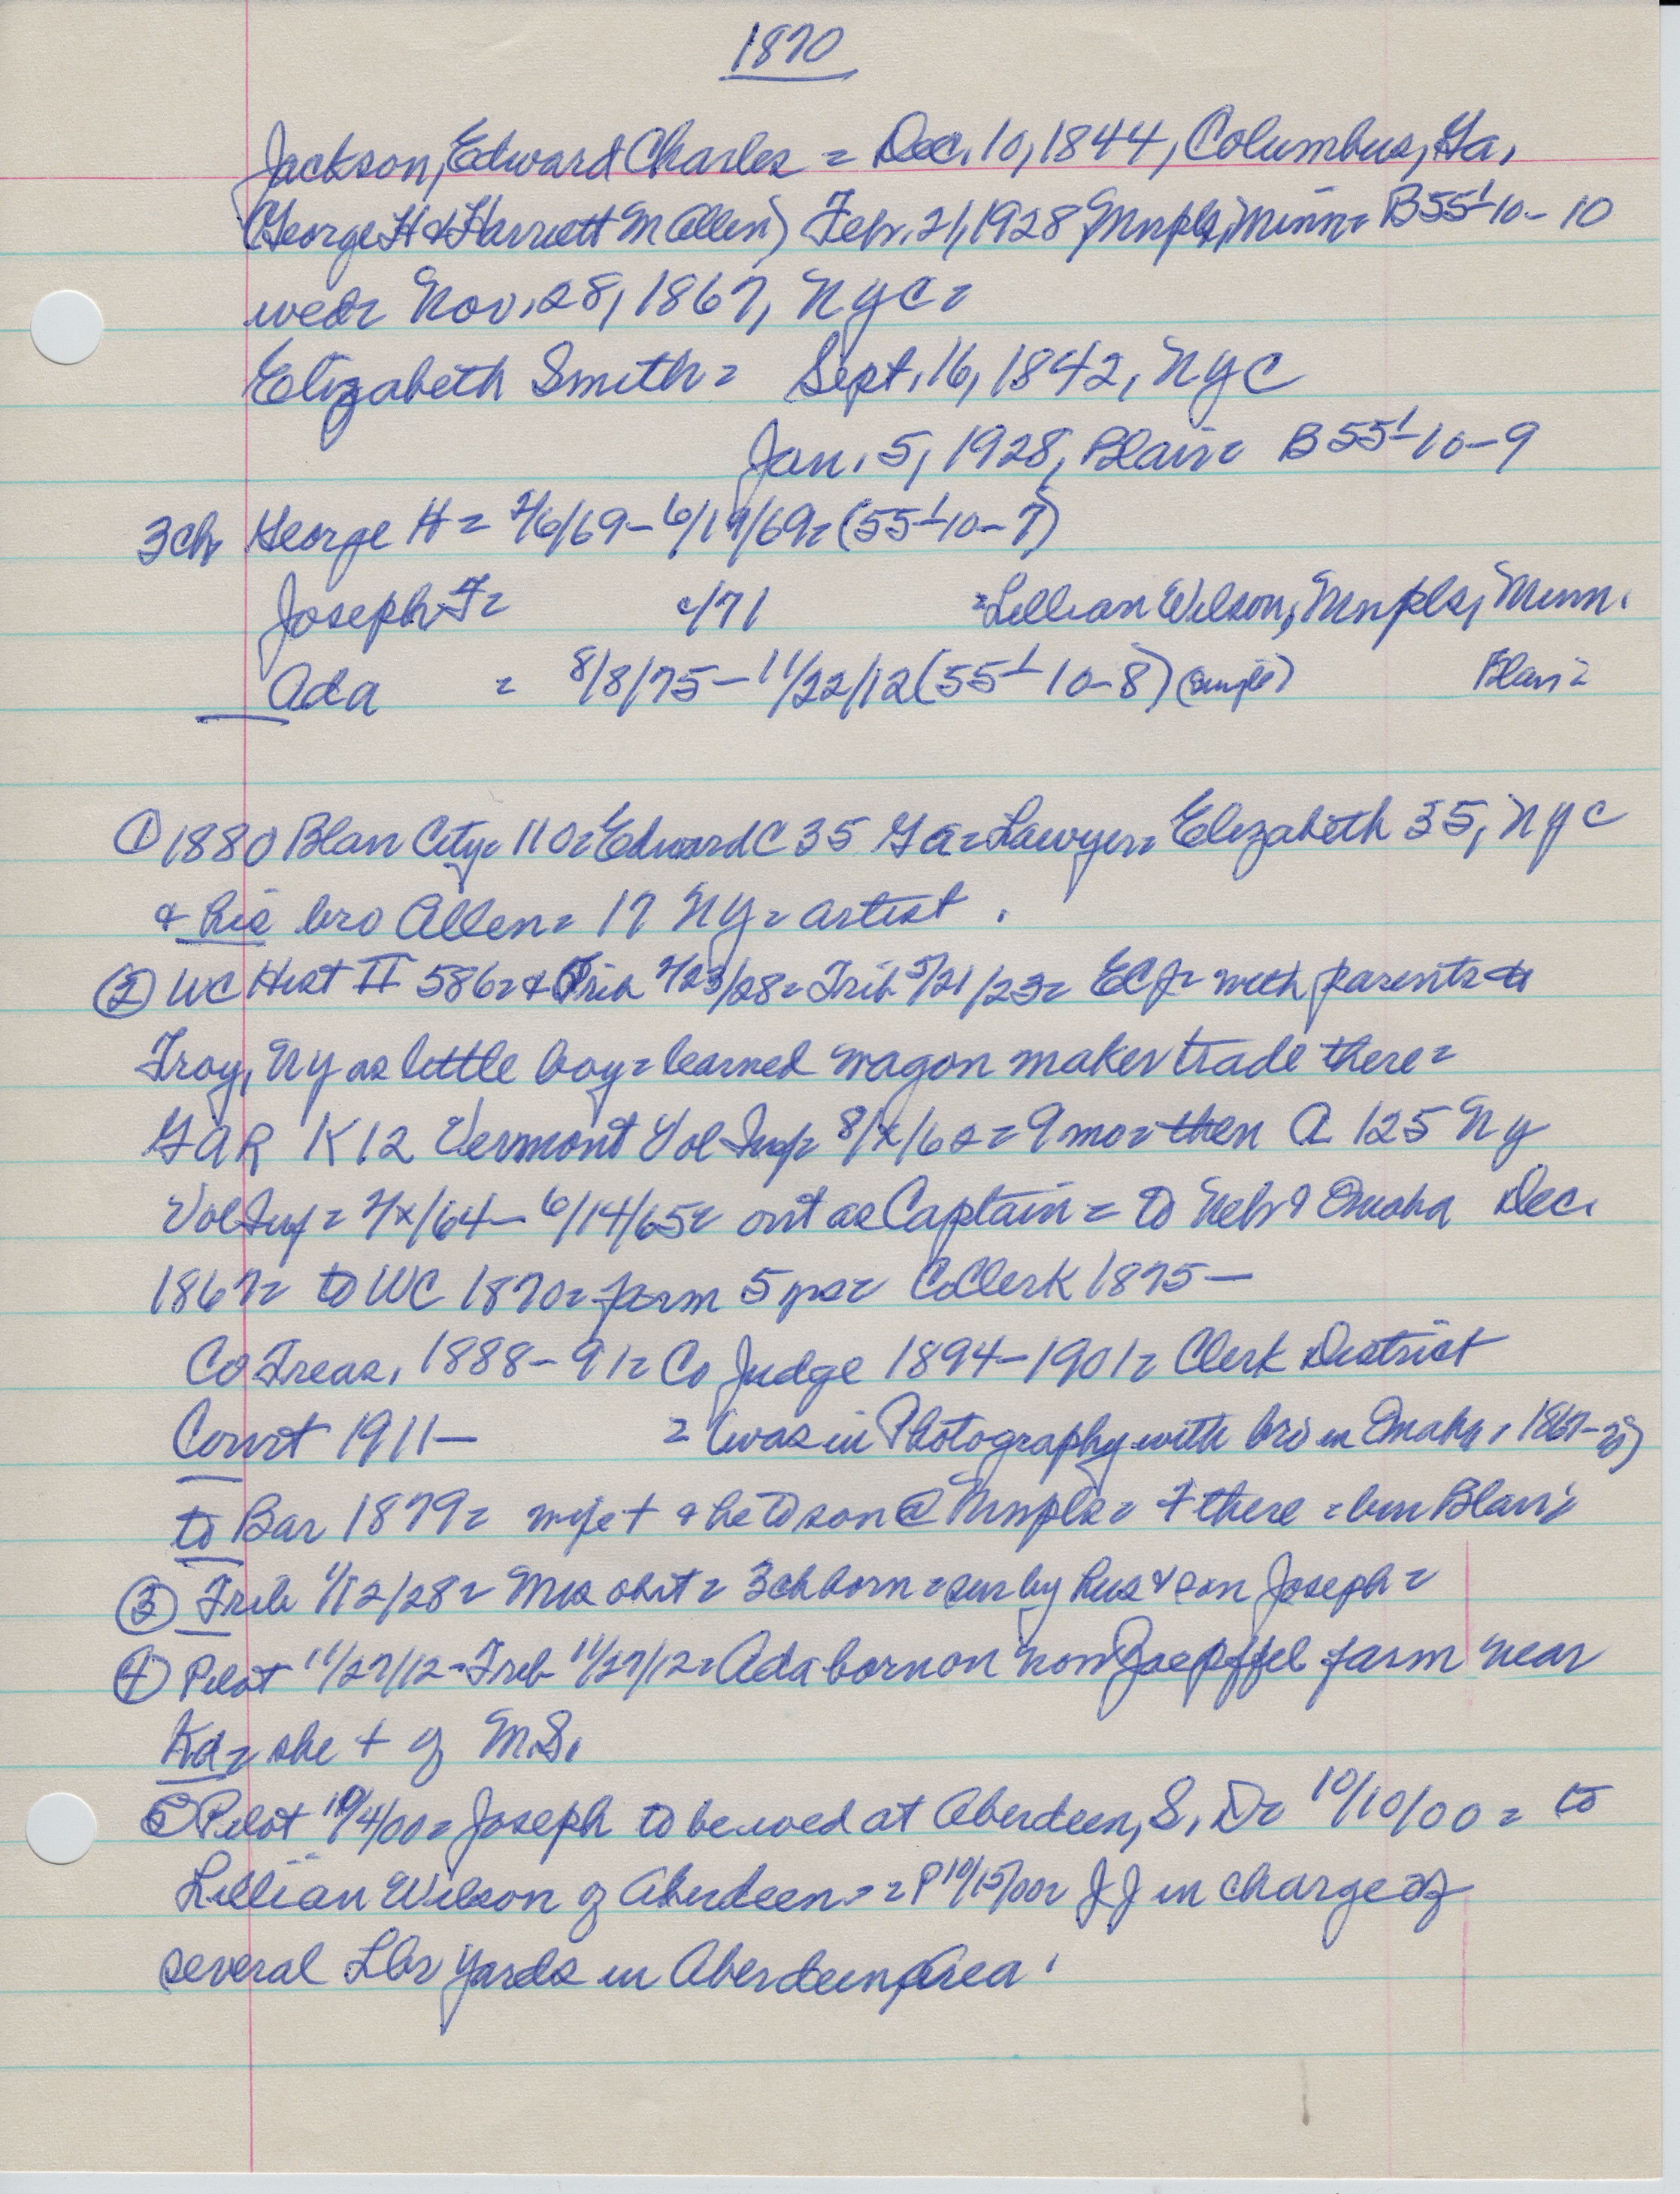 1870
Jackson, Edward Charles = Dec. 10, 1844, Columbus, Ga.
(George H & Harriett M Allen) Feb. 21, 1928, Mnpls, Minn = B 55-1-10-10
wed = Nov. 28, 1867, NYC =
Elizabeth Smith = Sept. 16, 1842, NYC
Jan. 5, 1928, Blair = B 55-1-10-9
3ch George H = 2/6/69 - 6/19/69 = (55-1-10-7)
Joseph F = c/71 = Lillian Wilson, Mnpls, Minn.
Ada = 8/8/75 - 11/22/12 (55-1-10-8) (single) Blair =
① 1880 Blair City = 110 = Edward C 35 Ga = Lawyer = Elizabeth 35, NYC
& his bro Allen = 17 NY = artist.
② WC Hist II 586 = & Trib 2/23/28 = Trib 5/21/23 = ECJ = with parents to
Troy, NY as little boy = learned wagon maker trade there =
GAR K 12 Vermont Vol Inf = 8/x/62 = 9 mo = then A 125 NY
Vol Inf = 2/x/64 - 6/14/65 = out as Captain = to Nebr & Omaha Dec.
1867 = to WC 1870 = farm 5 yrs = Co Clerk 1875 -
Co Treas. 1888 - 91 = Co Judge 1894 - 1901 = Clerk District
Court 1911 - = (was in Photography with bro in Omaha, 1867-70)
to Bar 1879 = wife + & he to son @ Mnpls = + there = bur Blair
③ Trib 1/12/28 = Mrs obit = 3 ch born = sur by hus & son Joseph =
④ Pilot 11/27/12 - Trib 11/27/12 = Ada born on now farm near
Kd = she + of M.S.
⑤ Pilot 10/4/00 = Joseph to be wed at Aberdeen, S.D = 10/10/00 = to
Lillian Wilson of Aberdeen = = P 10/15/00 = JJ in charge of
several Lbr Yards in Aberdeen, area.